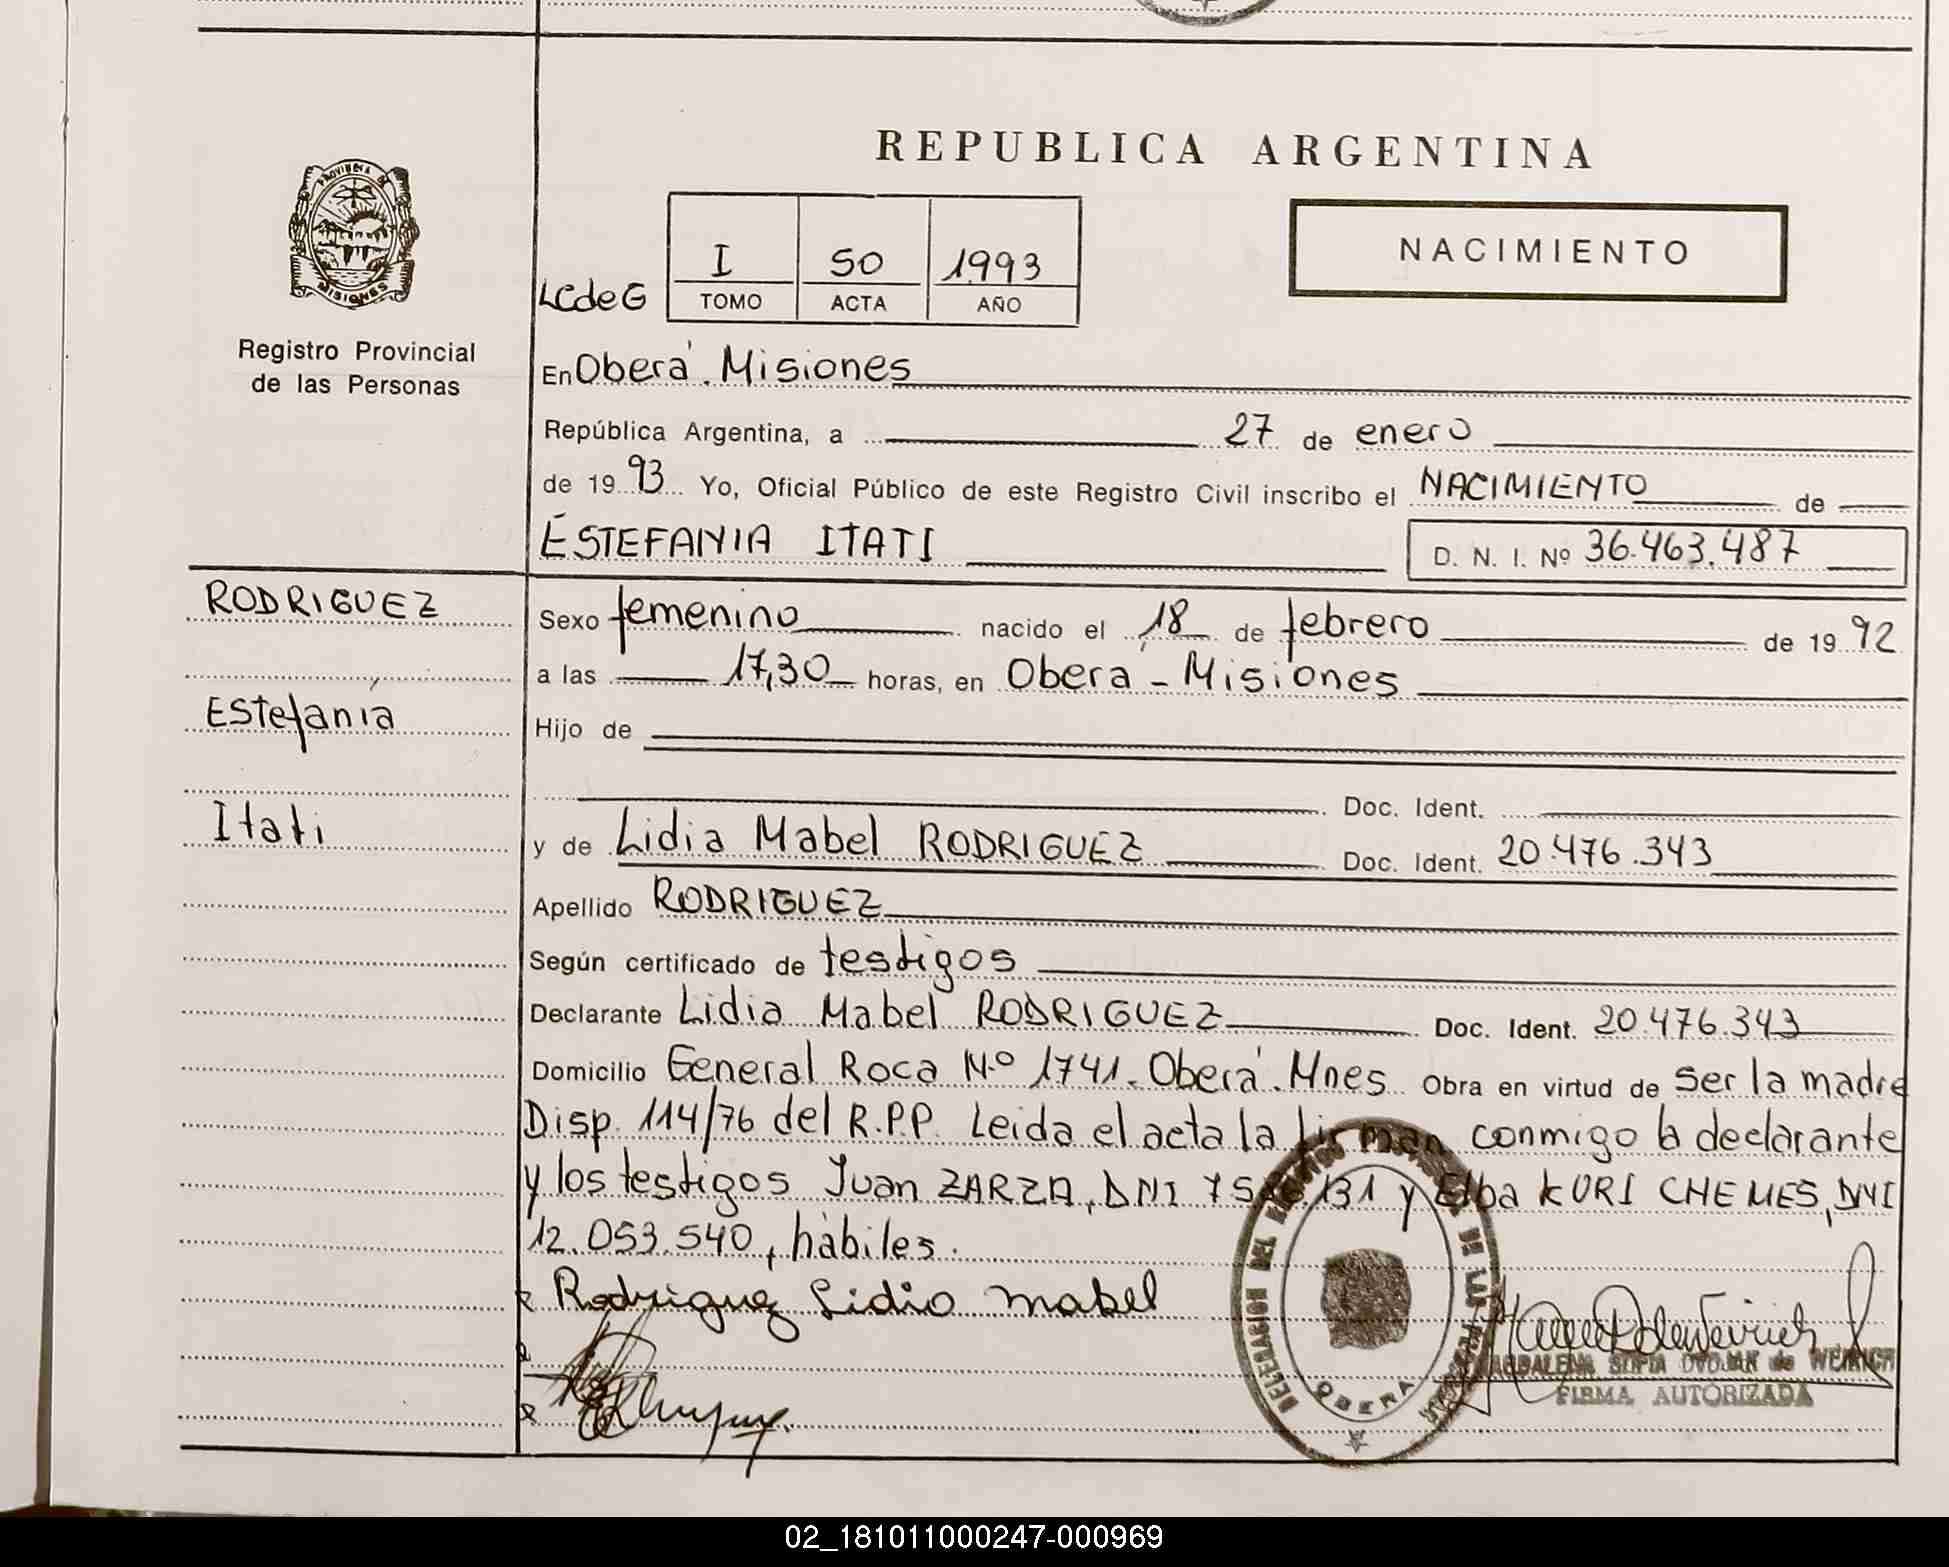 REPUBLICA ARGENTINA
PROVINCIA DE
MISIONES
Registro Provincial
de las Personas
LCdeG
I 50 1993
TOMO ACTA AÑO
NACIMIENTO
En Oberá. Misiones
República Argentina, a 27 de enero
de 1993 Yo, Oficial Público de este Registro Civil inscribo el NACIMIENTO de
ESTEFANIA ITATI D. N. I. Nº 36.463.487
RODRIGUEZ
Estefanía
Itati
Sexo femenino nacido el 18 de febrero de 1992
a las 17,30 horas, en Oberá - Misiones
Hijo de
Doc. Ident.
y de Lidia Mabel RODRIGUEZ Doc. Ident. 20.476.343
Apellido RODRIGUEZ
Según certificado de testigos
Declarante Lidia Mabel RODRIGUEZ Doc. Ident. 20.476.343
Domicilio General Roca N.º 1741. Oberá. Mnes Obra en virtud de ser la madre
Disp. 114/76 del R.P.P. Leida el acta la firman conmigo la declarante
y los testigos Juan ZARZA, DNI y Elba KURI CHEMES, DNI
12.053.540, hábiles.
Rodriguez Lidia Mabel
DELEGACION DEL REGISTRO PROVINCIAL DE LAS PERSONAS
OBERA
MAGDALENA SOFIA de WEIRICH
FIRMA AUTORIZADA
02_181011000247-000969